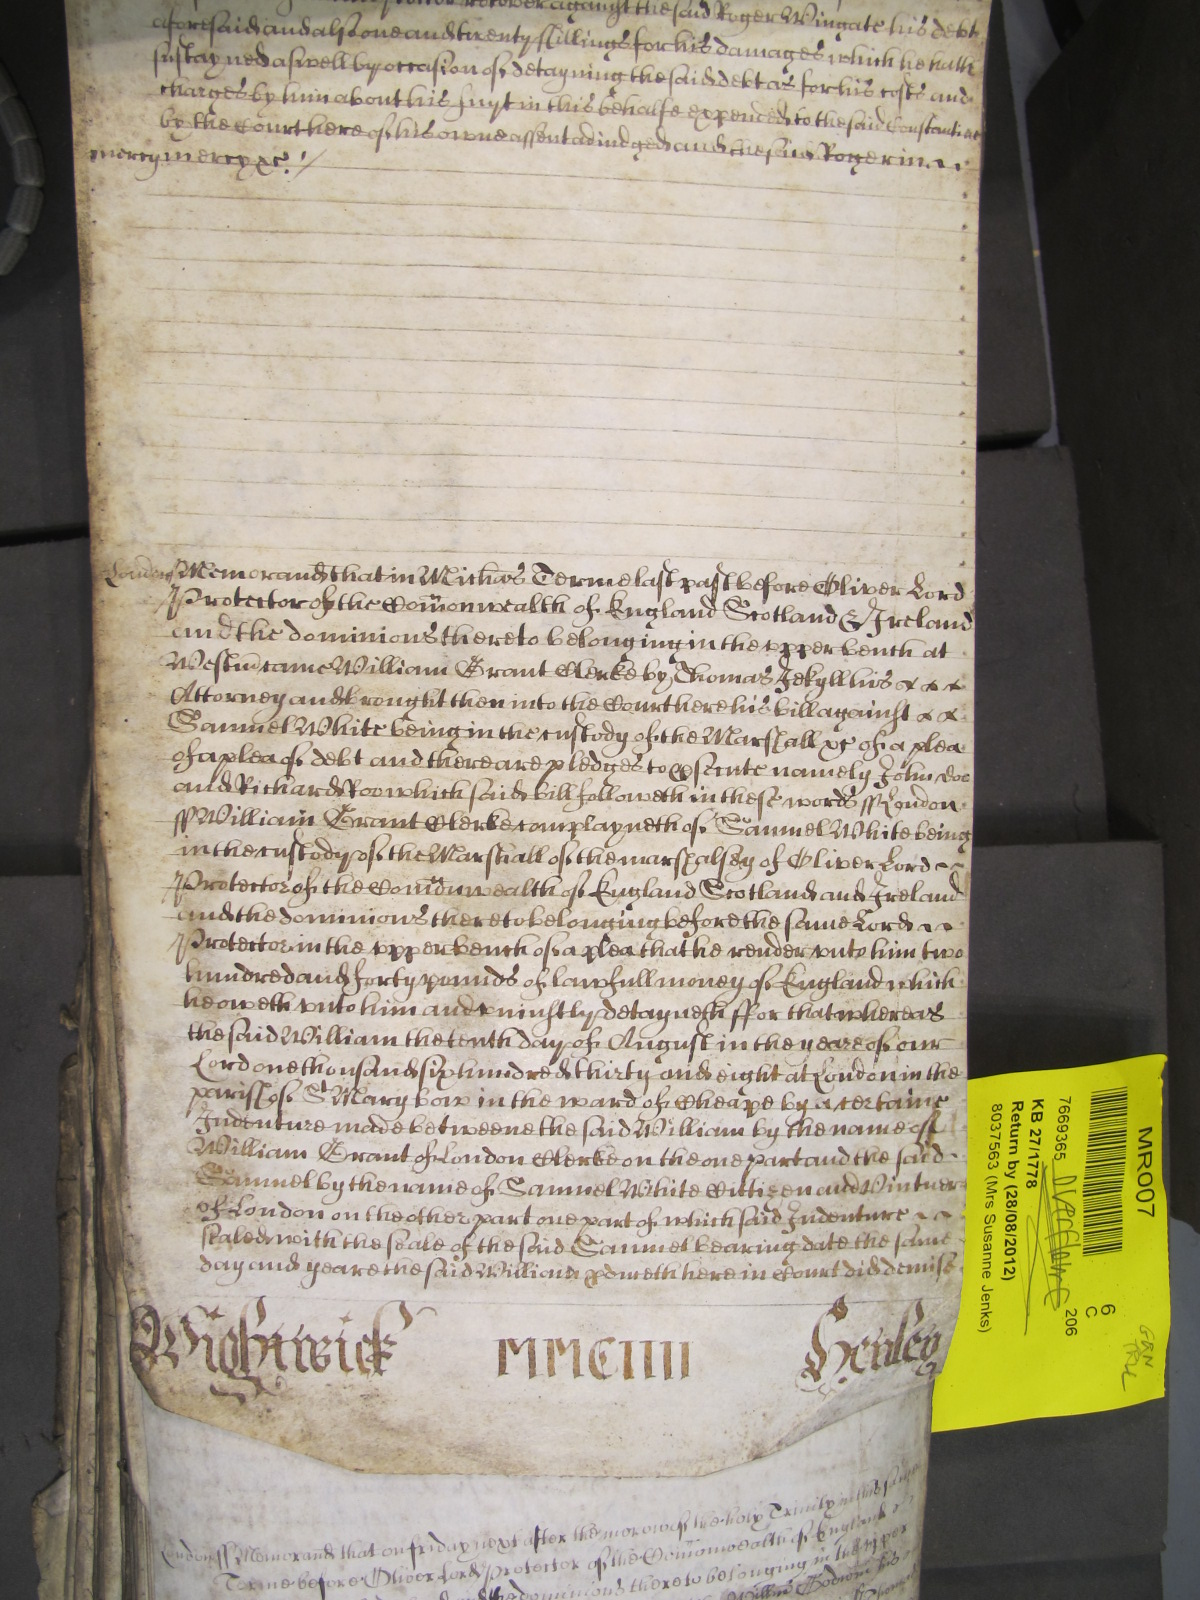 recover against the said Roger Wingate his debt
aforesaid and alsoe one and twenty shillings for his damages which he hath
sustayned aswell by occasion of detayning the said debt as for his costs and
charges by him about his suyt in this behalfe expended to the said Constantine
by the Court here of his owne assent adiudged and the said Roger in
mercy &c
London Memorand that in Michas Terme last past before Oliver Lord
Protector of the Comonwealth of England Scotland & Ireland
and the dominions thereto belonging in the vpper bench at
Westm came William Grant Clerke by Thomas Jekyll his
Attorney and brought then into the Court here his bill against
Samuel White being in the custody of the Marshall &c of a plea
of a plea of debt and there are pledges to psecute namely John Doe
and Richard Roo which said bill followeth in these words ss London
ss William Grant Clerke complayneth of Samuel White being
in the custody of the Marshall of the marshalsey of Oliver Lord
Protector of the Comonwealth of England Scotland and Ireland
and the dominions thereto belonging before the same Lord
Protector in the vpper bench of a plea that he render vnto him two
hundred and forty pounds of lawfull money of England which
he oweth vnto him and vniustly detayneth ffor that whereas
the said William the tenth day of August in the yeare of our
Lord one thousand six hundred thirty and eight at London in the
parish of St Mary bow in the ward of Cheape by a certaine
Indenture made betweene the said William by the name of
William Grant of London Clerke on the one part and the said
Samuel by the name of Samuel White Cittizen and Vintner
of London on the other part one part of which said Indenture
sealed with the seale of the said Samuel bearing date the same
day and yeare the said William bringeth here in Court did demise
Wightwick MMCIIII Henley
London ss Memorand that on friday next after the morow of the holy Trinity in this same
Terme before Oliver Lord Protector of the Comonwealth of England
the dominions thereto belonging in the vpper
Willm Godwin his
MRO07
6
C
206
7669365
KB 27/1778
Return by (28/08/2012)
8037563 (Mrs Susanne Jenks)